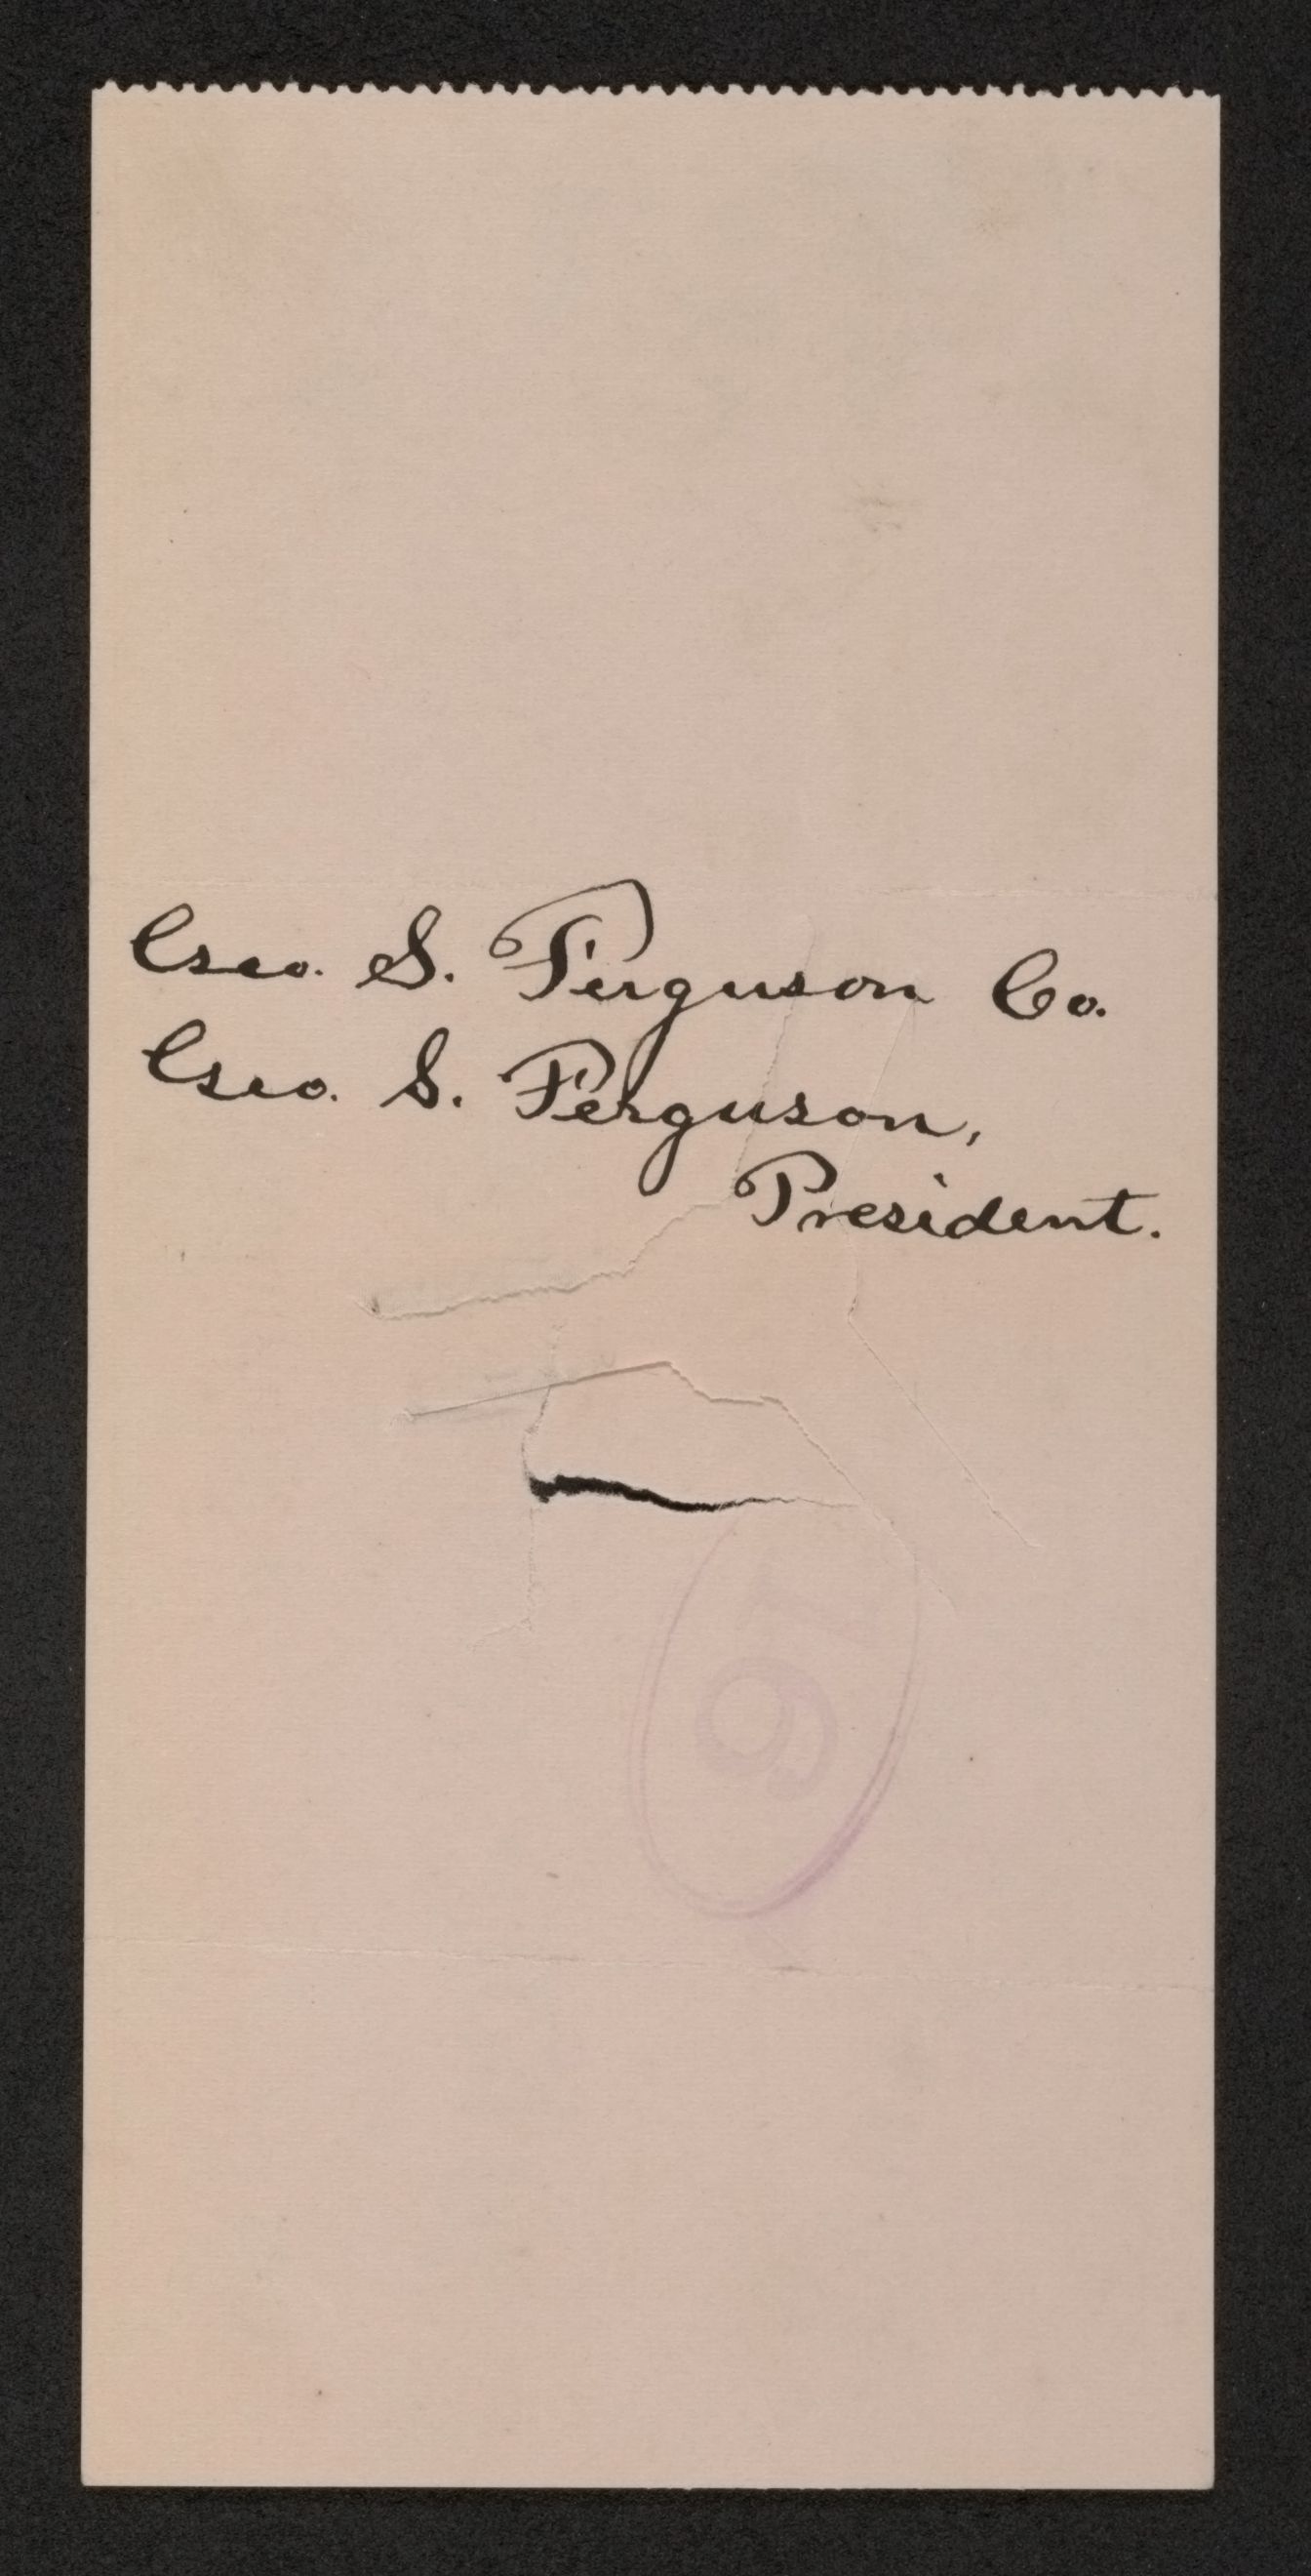 Geo. S. Ferguson Co.
Geo. S. Ferguson,
President.